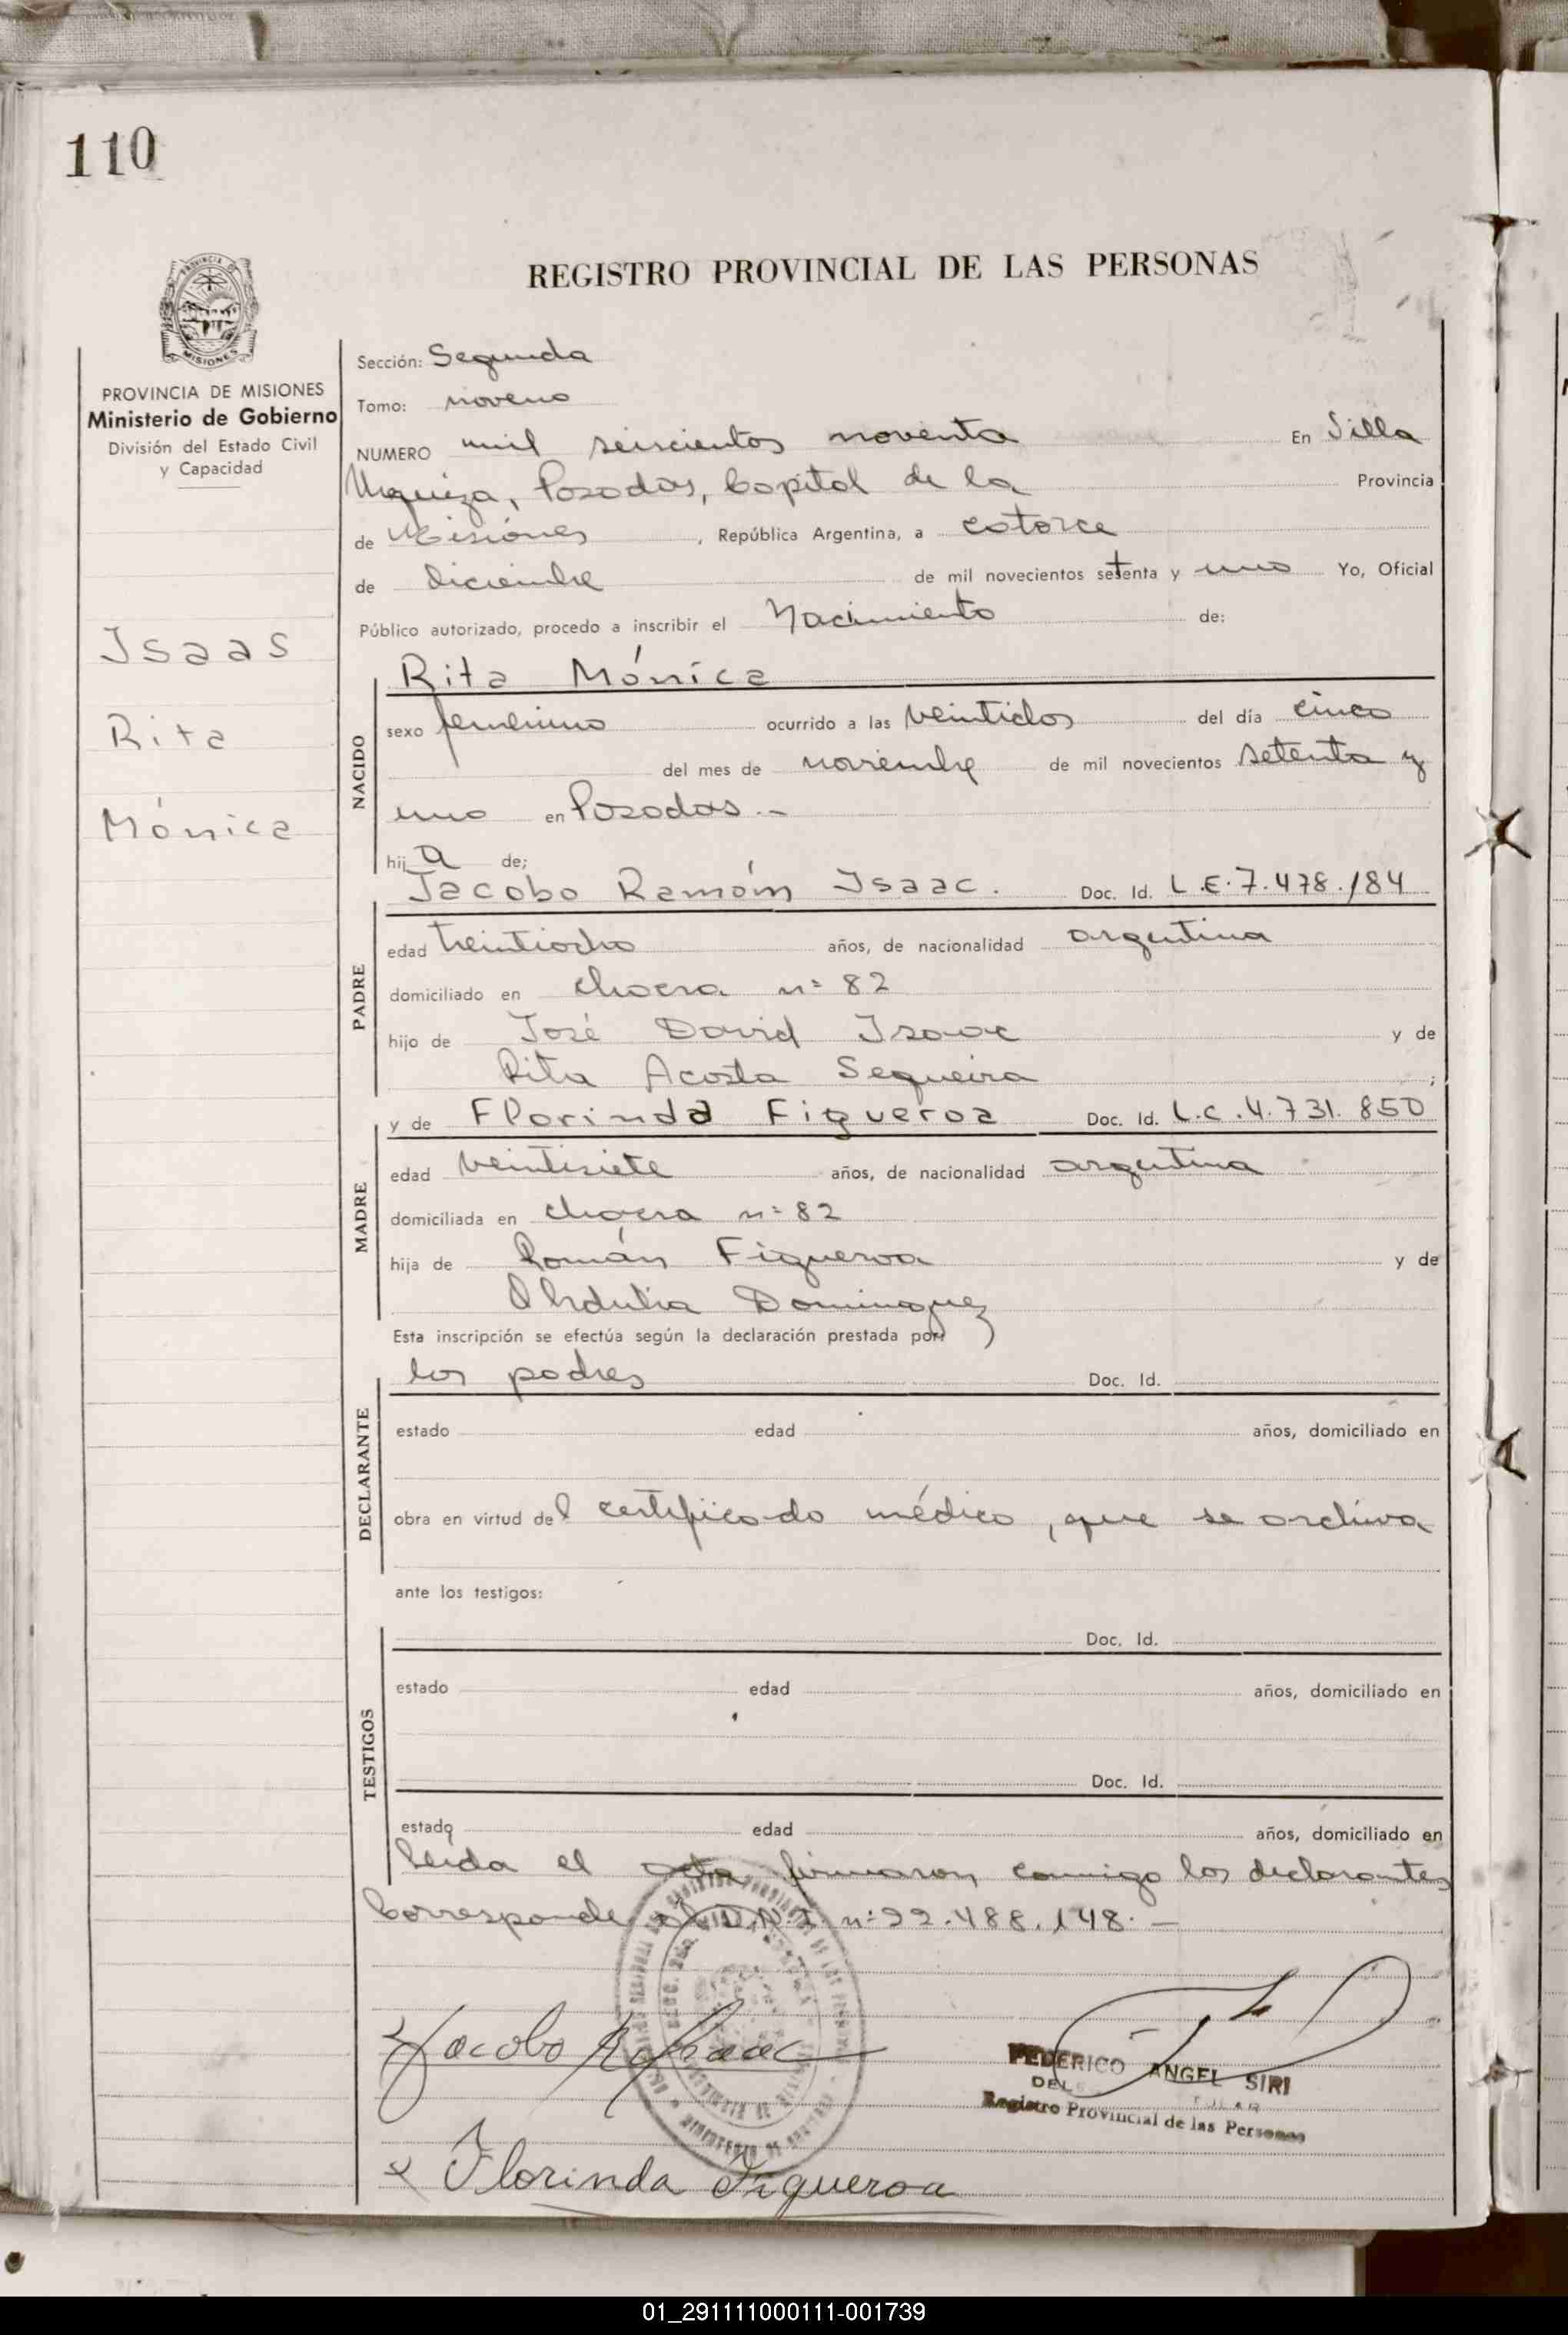 110
PROVINCIA DE MISIONES
Ministerio de Gobierno
División del Estado Civil
y Capacidad
Isaas
Rita
Mónica
REGISTRO PROVINCIAL DE LAS PERSONAS
Sección: Segunda
Tomo: noveno
NUMERO mil seiscientos noventa En Villa
Urquiza, Posadas, Capital de la Provincia
de Misiones, República Argentina, a catorce
de diciembre de mil novecientos setenta y uno Yo, Oficial
Público autorizado, procedo a inscribir el Nacimiento de:
Rita Mónica
NACIDO
sexo femenino ocurrido a las veintidos del día cinco
del mes de noviembre de mil novecientos setenta y
uno en Posadas.-
hija de;
Jacobo Ramón Isaac. Doc. Id. L.E.7.478.184
PADRE
edad treintiocho años, de nacionalidad argentina
domiciliado en chacra n= 82
hijo de José David Isaac y de
Rita Acosta Sequeira ;
y de Florinda Figueroa Doc. Id. L.C.4.731.850
MADRE
edad veintisiete años, de nacionalidad argentina
domiciliada en chacra n=82
hija de Román Figueroa y de
Obdulia Dominguez
Esta inscripción se efectúa según la declaración prestada por:
los padres Doc. Id.
DECLARANTE
estado edad años, domiciliado en
obra en virtud del certificado médico, que se archiva
ante los testigos:
Doc. Id.
TESTIGOS
estado edad años, domiciliado en
Doc. Id.
estado edad años, domiciliado en
Leida el acta, firmaron conmigo los declarantes
Corresponde al D.N.I. n=22.488.148.-
Jacobo R. Isaac
FEDERICO ANGEL SIRI
Registro Provincial de las Personas
Florinda Figueroa
01_291111000111-001739